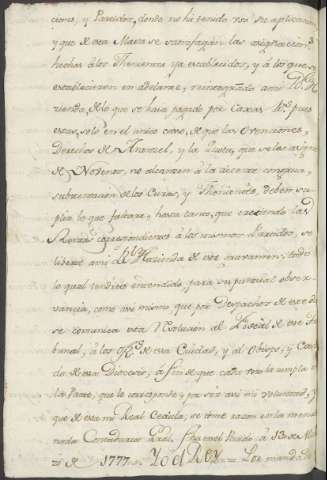 ciones, y Partidos, donde no há tenido no se aplicacion
y que de esta Masa se satisfagan las asignaciones
hechas á los Thenientes ya establecidos, y á los que se
establecieren en adelante, reintegrando ami Rl. Ha
zienda, de lo que se haia pagado por Caxas Rs. pues
estas, solo en el unico caso, de que las Obenciones,
Derechos de Aranzel, y la Quota, que se les asigne
de Novenos, no alcanzen á la decente congrua,
subsistencia de los Curas, y Thenientes, deben su
plir lo que faltare, hasta tanto, que creciendo las
Rentas correspondientes á los mismos Partidos, se
liberte ami Rl. Hacienda de este gravamen: todo
lo qual tendreis entendido, para su puntual obser
vancia, como asi mismo que por Despachos de este dia
se comunica esta Resolucion al Fiscal de ese Tri
bunal, á los de esa Ciudad, y al Obispo, y
de esa Diocesis, á fin de que cada uno la cumpla en
la Parte, que le corresponde por ser asi mi voluntad, y
que de esta mi Real Cedula, se tome razon en la mencio
nada Contaduria Gral. Fha. en el Pardo, á de
de 1777 = Yo el Rey = Por mandado